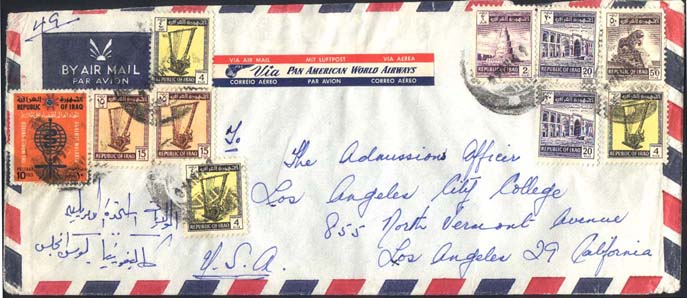 49
BY AIR MAIL
PAR AVION
VIA AIR MAIL MIT LUFTPOST VIA AEREA
Via PAN AMERICAN WORLD AIRWAYS
CORREIO AEREO PAR AVION CORREO AEREO
الجمهورية العراقية
REPUBLIC OF IRAQ
10
REPUBLIC OF IRAQ
4
REPUBLIC OF IRAQ
15
REPUBLIC OF IRAQ
15
REPUBLIC OF IRAQ
4
REPUBLIC OF IRAQ
2
REPUBLIC OF IRAQ
20
REPUBLIC OF IRAQ
50
REPUBLIC OF IRAQ
20
REPUBLIC OF IRAQ
4
To
The Admissions Officer
Los Angeles City College
855 North Vermont Avenue
Los Angeles 29 California
U.S.A.
الولايات المتحدة الامريكية
كاليفورنيا لوس انجلس